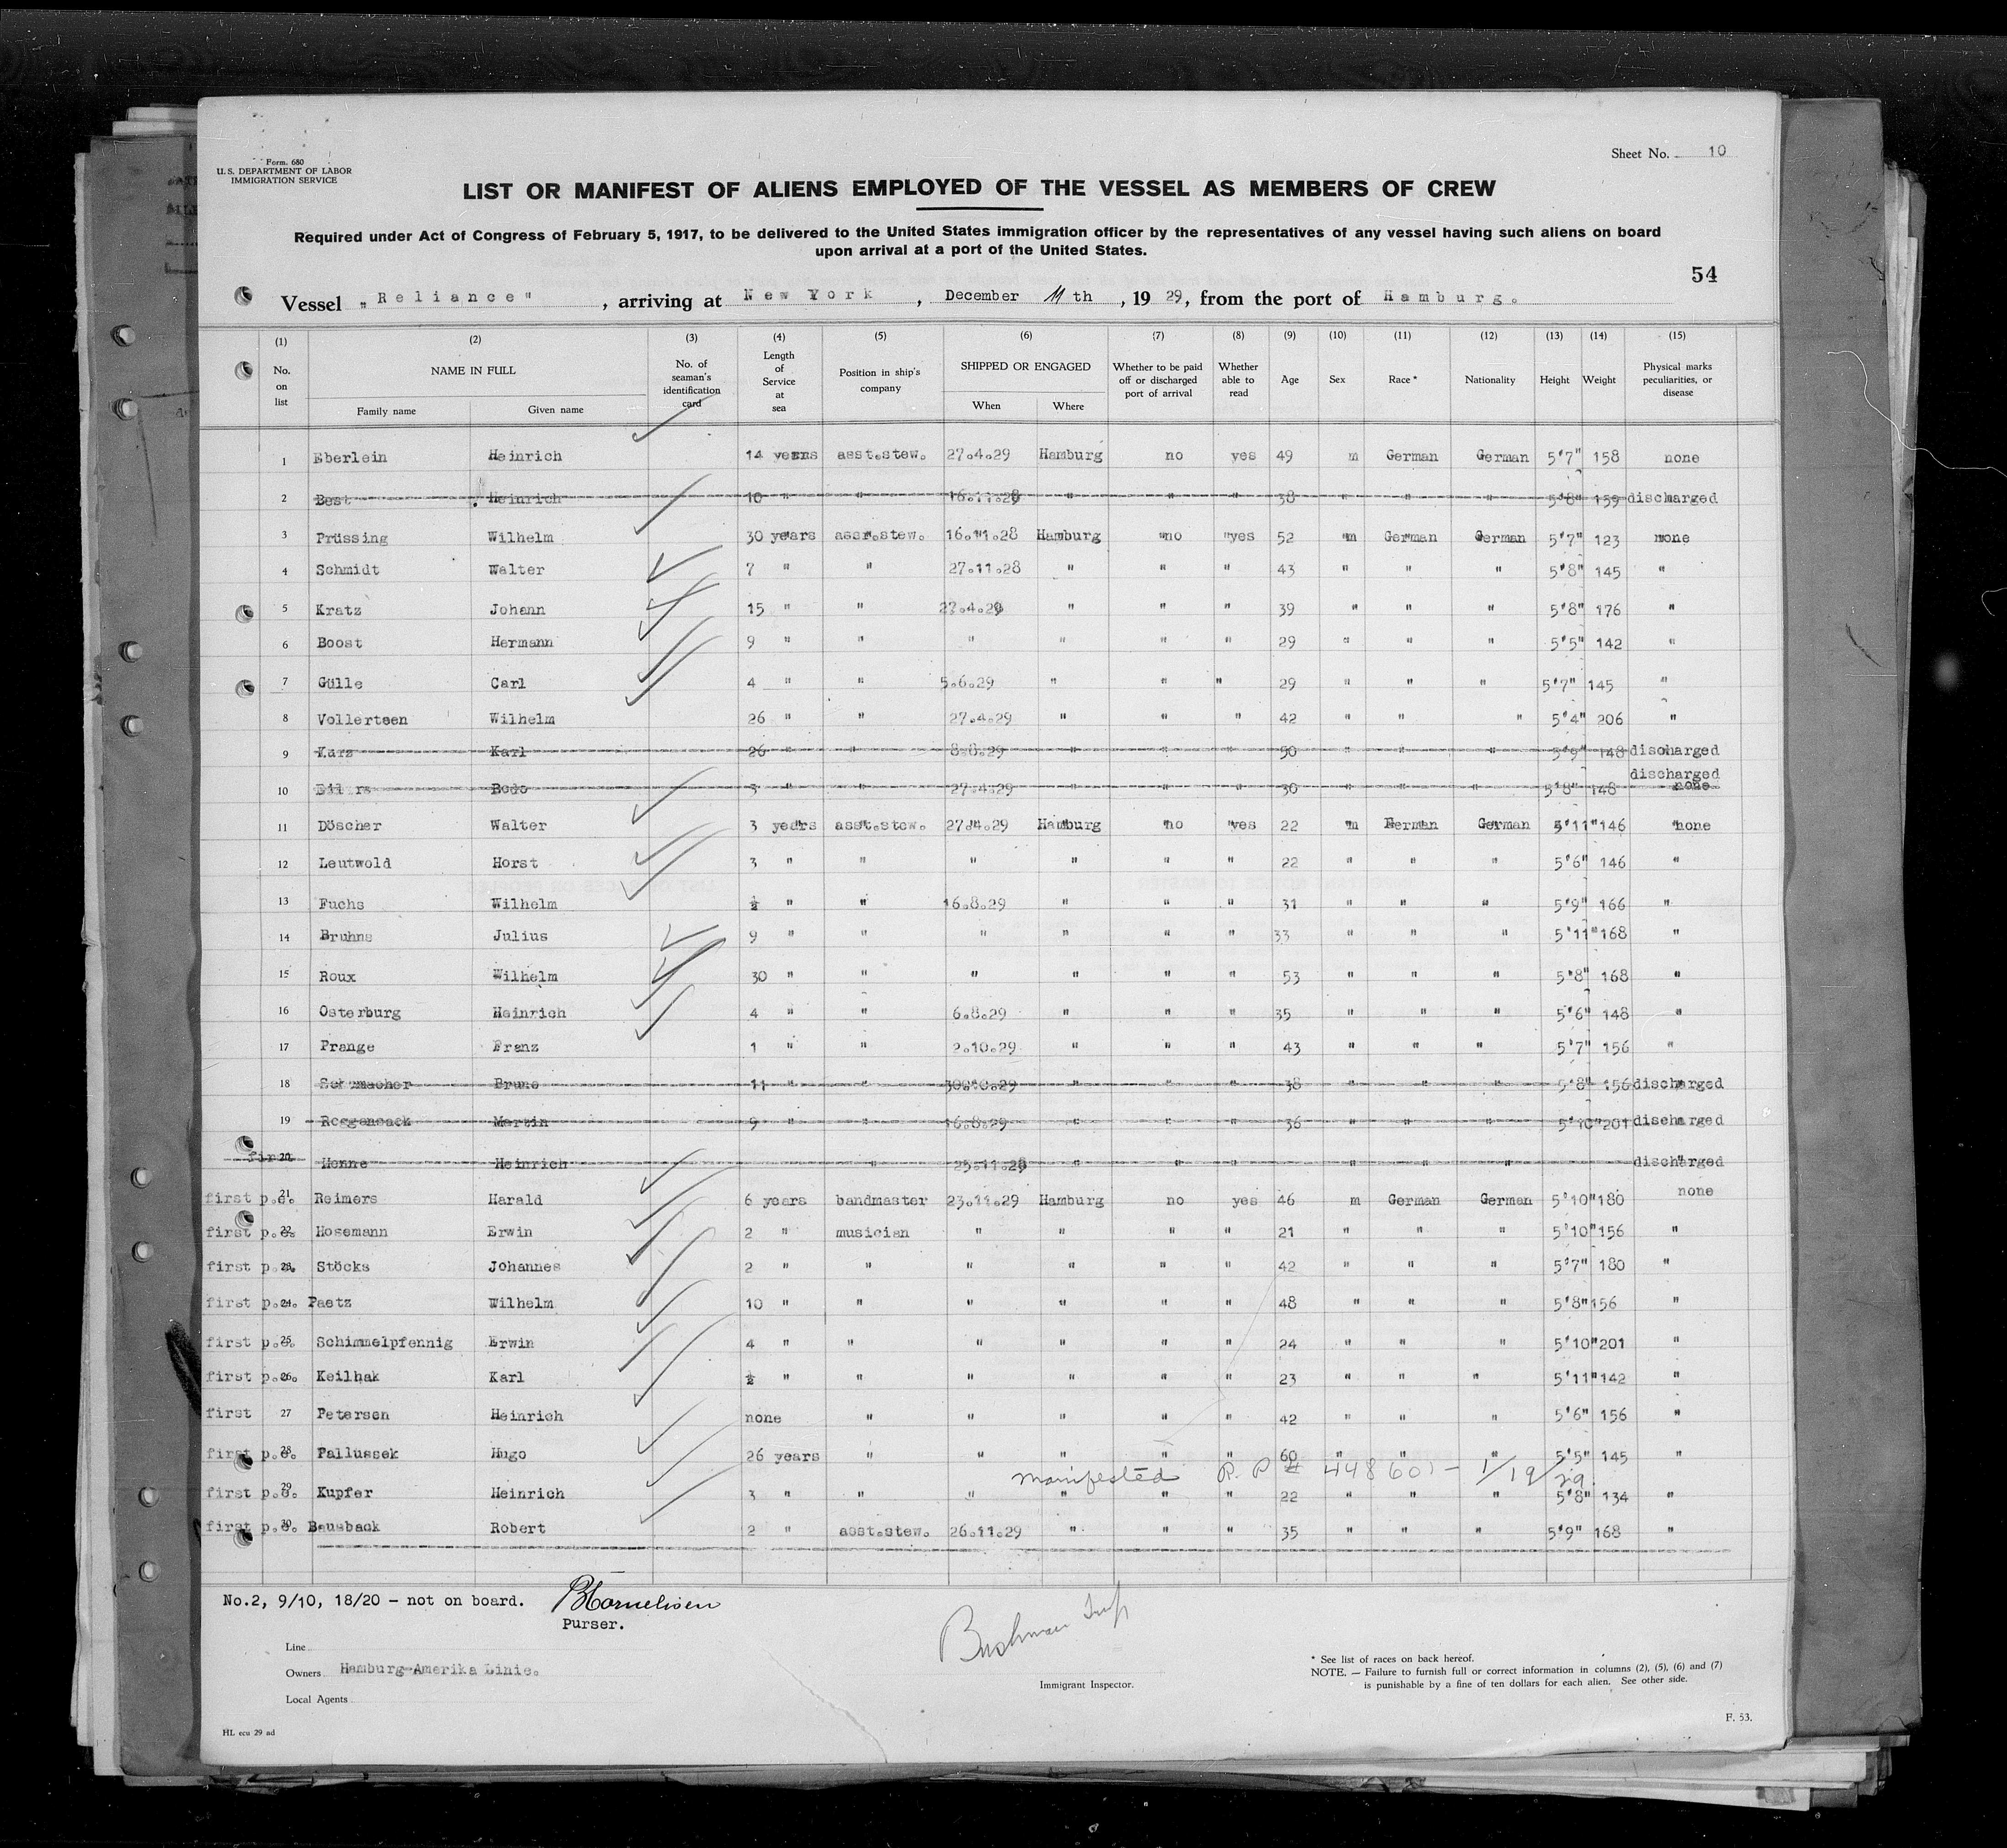 Form. 680
U. S. DEPARTMENT OF LABOR
IMMIGRATION SERVICE
Sheet No. 10
LIST OR MANIFEST OF ALIENS EMPLOYED OF THE VESSEL AS MEMBERS OF CREW
Required under Act of Congress of February 5, 1917, to be delivered to the United States immigration officer by the representatives of any vessel having such aliens on board
upon arrival at a port of the United States.
54
Vessel „Reliance", arriving at New York, December 11 th, 1929, from the port of Hamburg.
(1) (2) (3) (4) (5) (6) (7) (8) (9) (10) (11) (12) (13) (14) (15)
No. on list NAME IN FULL Family name Given name No. of seaman's identification card Length of Service at sea Position in ship's company SHIPPED OR ENGAGED When Where Whether to be paid off or discharged port of arrival Whether able to read Age Sex Race * Nationality Height Weight Physical marks peculiarities, or disease
1 Eberlein Heinrich 14 years asst.stew. 27.4.29 Hamburg no yes 49 m German German 5'7" 158 none
2 Best Heinrich 10 " " 16.11.28 " " " 38 " " " 5'8" 159 discharged
3 Prüssing Wilhelm 30 years asst.stew. 16.11.28 Hamburg no yes 52 m German German 5'7" 123 none
4 Schmidt Walter 7 " " 27.11.28 " " " 43 " " " 5'8" 145 "
5 Kratz Johann 15 " " 27.4.29 " " " 39 " " " 5'8" 176 "
6 Boost Hermann 9 " " " " " " 29 " " " 5'5" 142 "
7 Gülle Carl 4 " " 5.6.29 " " " 29 " " " 5'7" 145 "
8 Vollertsen Wilhelm 26 " " 27.4.29 " " " 42 " " " 5'4" 206 "
9 Kurz Karl 26 " " 8.8.29 " " " 50 " " " 5'9" 148 discharged
10 Eilers Bodo 3 " " 27.4.29 " " " 30 " " " 5'8" 148 discharged none
11 Döscher Walter 3 years asst.stew. 27.4.29 Hamburg no yes 22 m German German 5'11" 146 none
12 Leutwold Horst 3 " " " " " " 22 " " " 5'6" 146 "
13 Fuchs Wilhelm ½ " " 16.8.29 " " " 31 " " " 5'9" 166 "
14 Bruhns Julius 9 " " " " " " 33 " " " 5'11" 168 "
15 Roux Wilhelm 30 " " " " " " 53 " " " 5'8" 168 "
16 Osterburg Heinrich 4 " " 6.8.29 " " " 35 " " " 5'6" 148 "
17 Prange Franz 1 " " 2.10.29 " " " 43 " " " 5'7" 156 "
18 Schumacher Bruno 11 " " " " " 38 " " " 5'8" 156 discharged
19 Roggensack Martin 9 " " 16.8.29 " " " 36 " " " 5'10" 201 discharged
first 20 Henne Heinrich " 25.11.28 " " " " " " discharged
first p.e. 21 Reimers Harald 6 years bandmaster 23.11.29 Hamburg no yes 46 m German German 5'10" 180 none
first p.e. 22 Hosemann Erwin 2 " musician " " " " 21 " " " 5'10" 156 "
first p.e. 23 Stöcks Johannes 2 " " " " " " 42 " " " 5'7" 180 "
first p.e. 24 Paetz Wilhelm 10 " " " " " " 48 " " " 5'8" 156 "
first p.e. 25 Schimmelpfennig Erwin 4 " " " " " " 24 " " " 5'10" 201 "
first p.e. 26 Keilhak Karl ½ " " " " " " 23 " " " 5'11" 142 "
first 27 Petersen Heinrich none " " " " " 42 " " " 5'6" 156 "
first p.e. 28 Pallussek Hugo 26 years " " " " " 60 " " " 5'5" 145 "
manifested R. P # 448601 - 1/19/29.
first p.e. 29 Kupfer Heinrich 3 " " " " " " 22 " " " 5'8" 134 "
first p.e. 30 Bausback Robert 2 " asst.stew. 26.11.29 " " " 35 " " " 5'9" 168 "
No.2, 9/10, 18/20 - not on board. BCornelisen
Purser.
Bushman Insp
Line
Owners Hamburg-Amerika Linie.
Local Agents
Immigrant Inspector.
* See list of races on back hereof.
NOTE. — Failure to furnish full or correct information in columns (2), (5), (6) and (7)
is punishable by a fine of ten dollars for each alien. See other side.
HL ecu 29 ad
F. 53.